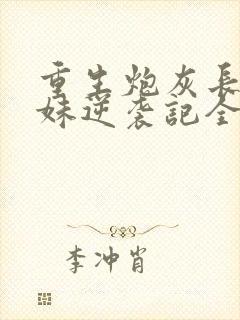 重生炮灰長
妹逆袭記全
李冲肖